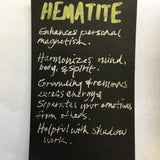 HEMATITE
Enhances personal
magnetism.
Harmonizes mind,
body, & spirit.
Grounding & removes
excess energy &
Separates your emotions
from others.
Helpful with shadow
work.